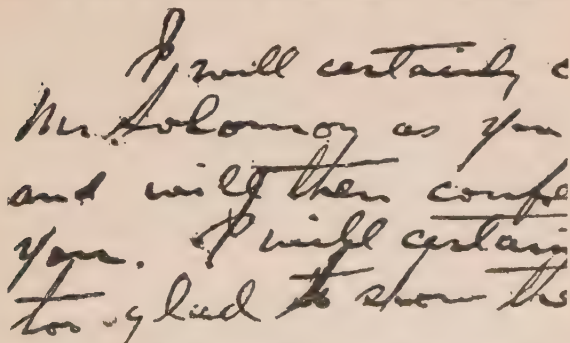 I will certainly c
Mr. Solomon as you
and will then confe
you. I will certain
too glad to show the